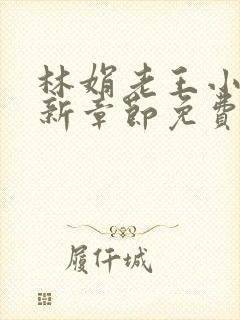 林娟老王小
新章節免費
履仟城